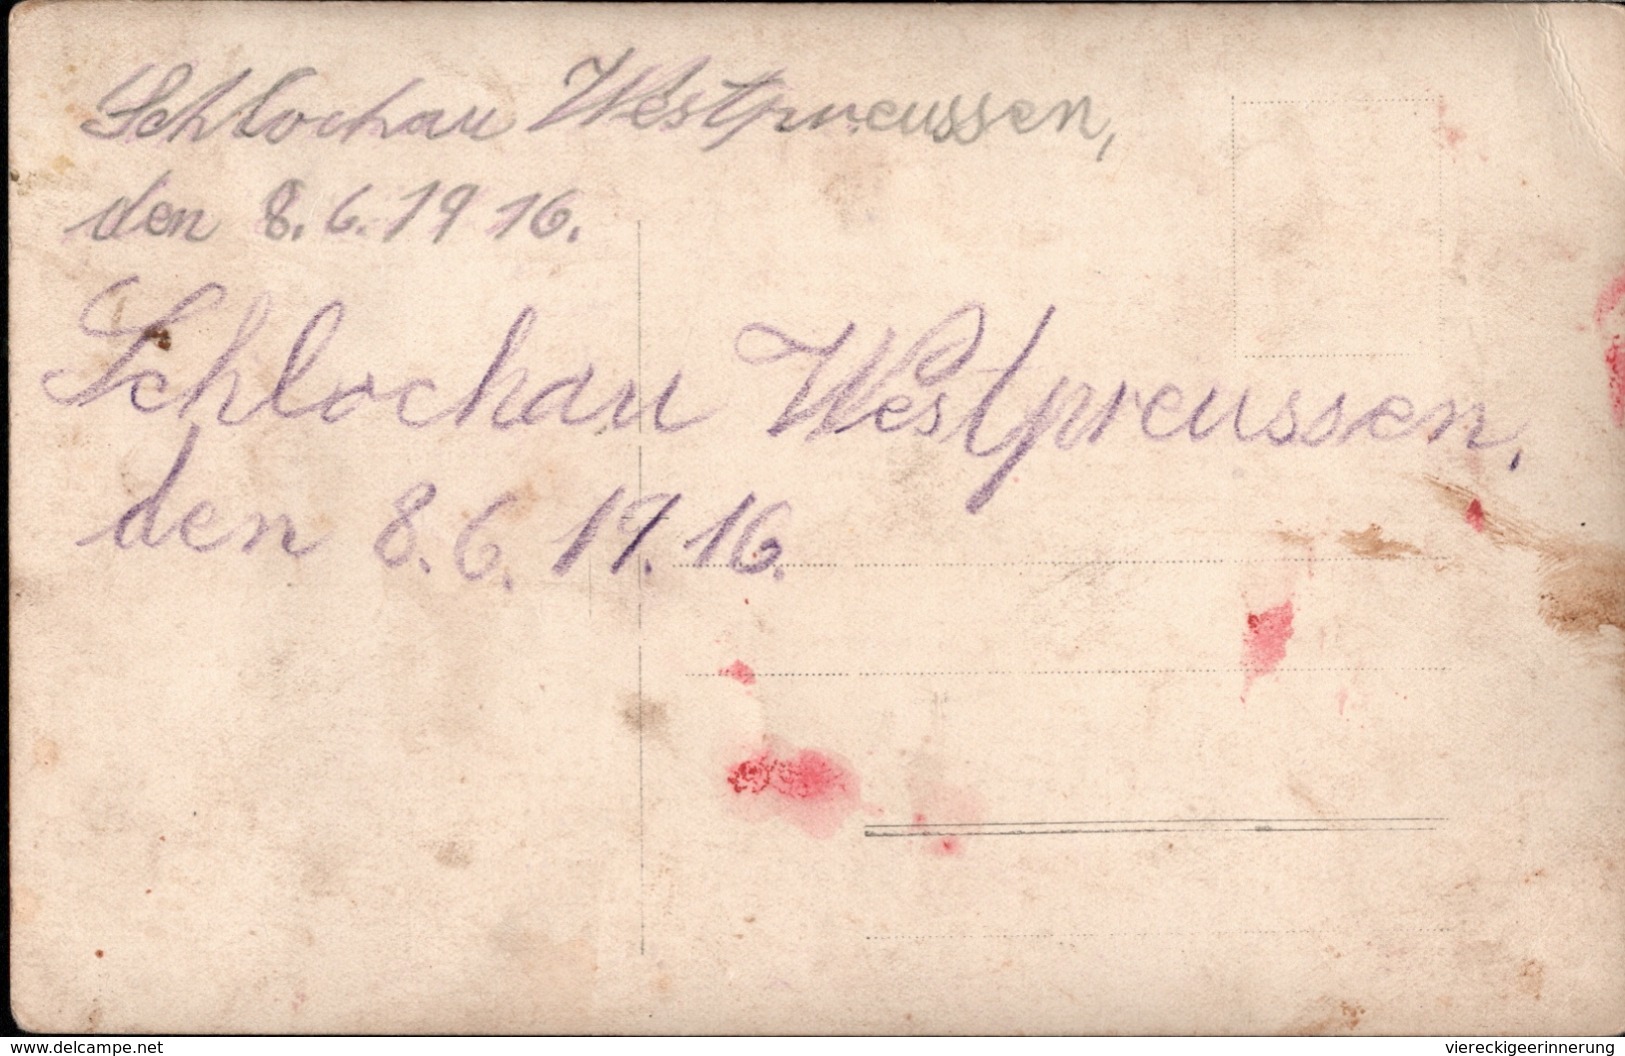 Schlochau Westpreussen,
den 8.6.1916.
Schlochau Westpreussen,
den 8.6.19.16.
www.delcampe.net
viereckigeerinnerung